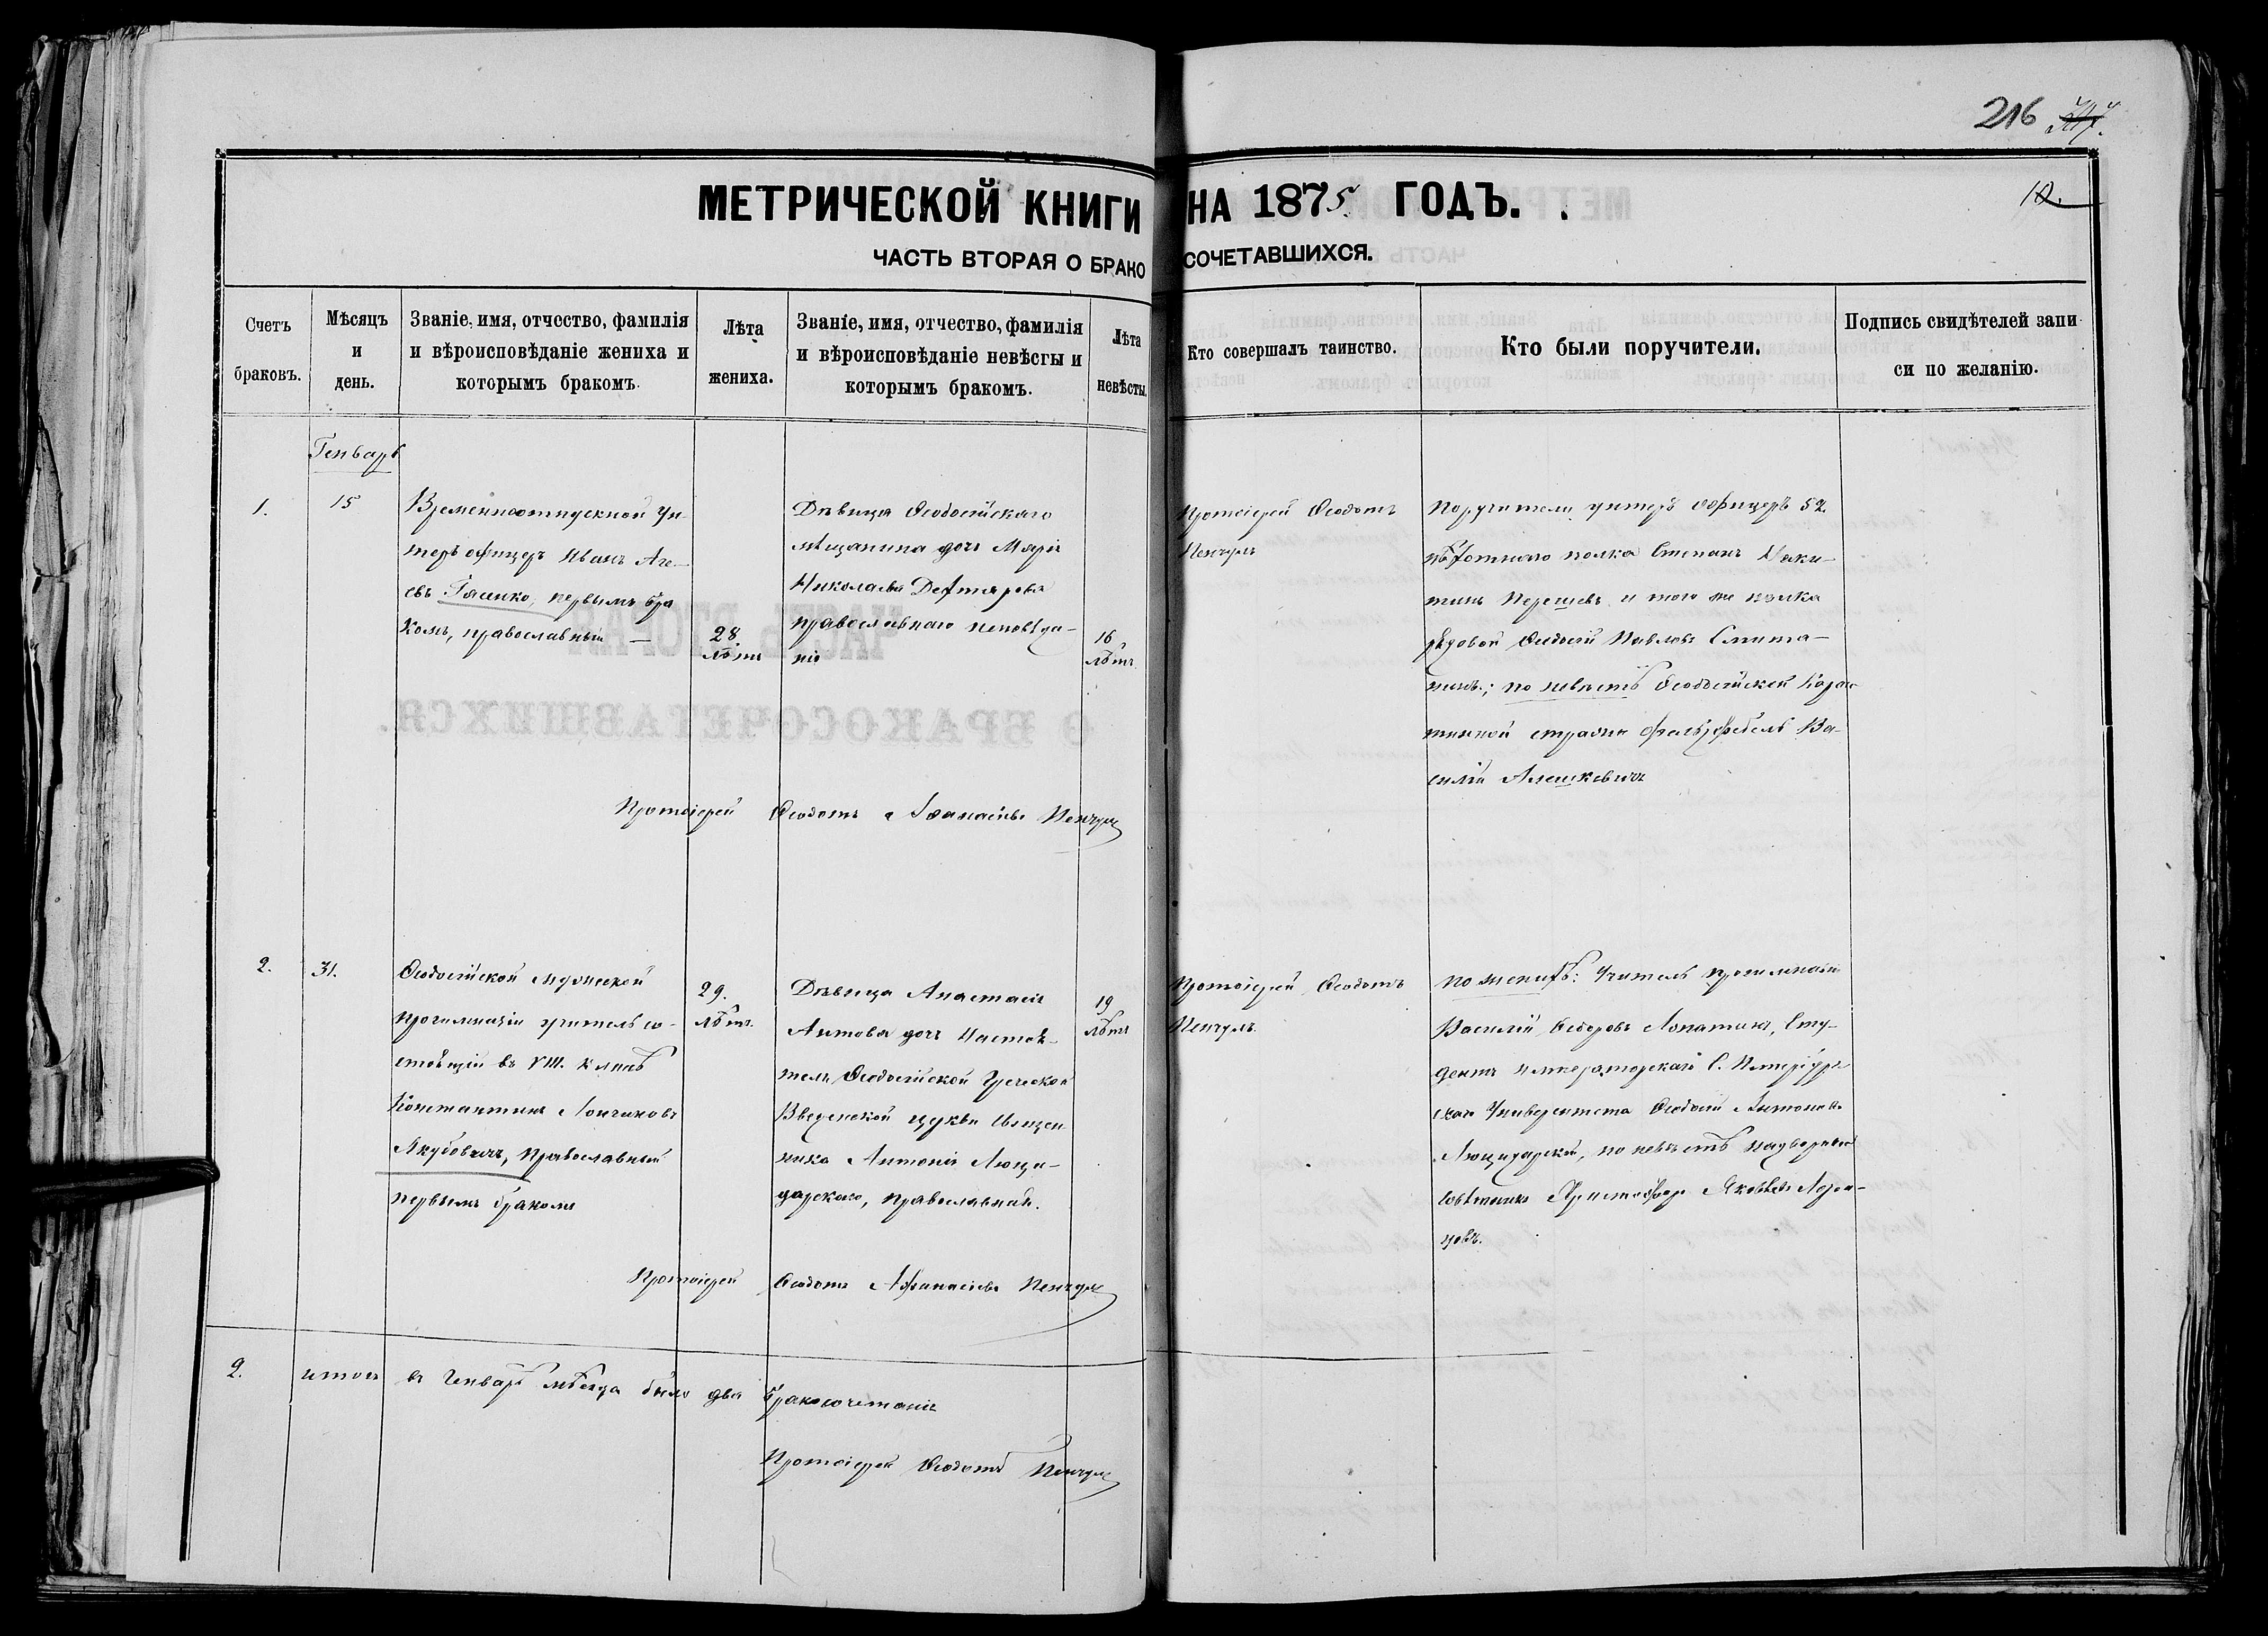 216
МЕТРИЧЕСКОЙ КНИГИ НА 1875 ГОДЪ.
10.
ЧАСТЬ ВТОРАЯ О БРАКОСОЧЕТАВШИХСЯ.
Счетъ браковъ.
Мѣсяцъ и день.
Званіе, имя, отчество, фамилія и вѣроисповѣданіе жениха и которымъ бракомъ.
Лѣта жениха.
Званіе, имя, отчество, фамилія и вѣроисповѣданіе невѣсты и которымъ бракомъ.
Лѣта невѣсты.
Кто совершалъ таинство.
Кто были поручители.
Подпись свидѣтелей записи по желанію.
Генварь
1.
15
Временноотпускной Ун-
теръ офицеръ Иванъ Аге-
евъ первымъ бра
комъ, православный —
28.
лѣтъ
Дѣвица Ѳеодосійскаго
мѣщанина дочь Марія
Николаева Дехтярева
православнаго исповѣда-
нія
16
лѣтъ.
Протоіерей Ѳеодотъ
Пенчулъ
Поручители унтеръ офицеръ 52.
пѣхотнаго полка Степанъ
и того же полка
рядовой Ѳеодосій Павловъ
по невѣстѣ Ѳеодосійской Каран
тинной стражи фельдфебель Ва-
силій Алешкевичъ
Протоіерей Ѳеодотъ Аѳанасіевъ Пенчулъ
2.
31.
Ѳеодосійской мужеской
прогимназіи учитель со-
стоящій въ VIII. классѣ
Константинъ Лончиновъ
Якубовичъ, православный
первымъ бракомъ
29.
лѣтъ.
Дѣвица Анастасія
Антонова дочь Настоя-
теля Ѳеодосійской Греческой
Введенской церкви Священ
ника Антонія Люци-
дарскаго, православная.
19
лѣтъ
Протоіерей Ѳеодотъ
Пенчулъ.
по женихѣ: Учитель прогимназіи
Василій Ѳедоровъ Лопатинъ, Сту-
дентъ императорскаго С. Петербург
скаго Университета Ѳеодосій Антоновъ
Люцидарскій, по невѣстѣ Надворный
Совѣтникъ Христофоръ Яковлевъ
Протоіерей Ѳеодотъ Афанасіевъ Пенчулъ
2.
итого въ Генварѣ мѣсяцѣ было два бракосочетанія
Протоіерей Ѳеодотъ Пенчулъ